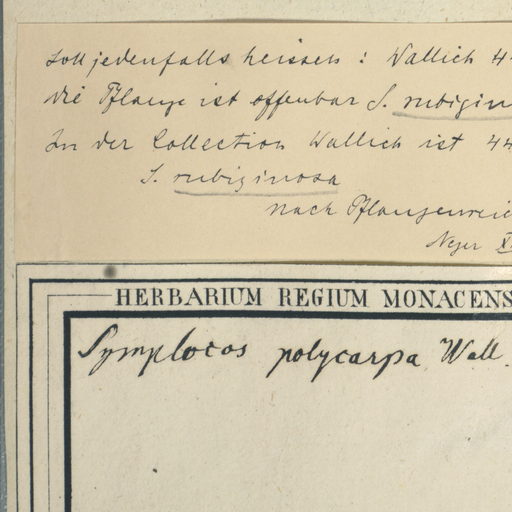 soll jedenfalls heissen : Wallich 44
die Pflanze ist offenbar S. rubigin
In der Collection Wallich ist 44
S. rubiginosa
nach Pflanzenreich
Neger X
HERBARIUM REGIUM MONACENS
Symplocos polycarpa Wall.